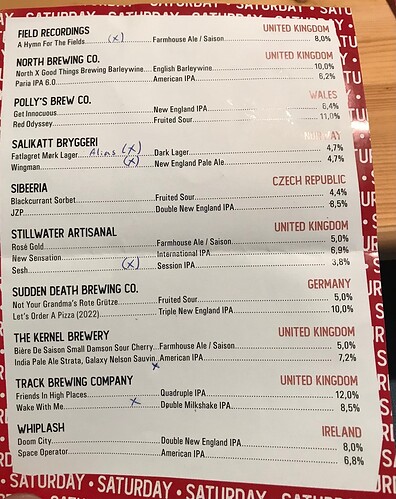 SATURDAY • SATURDAY • SATURDAY
FIELD RECORDINGS UNITED KINGDOM
A Hymn For The Fields (x) Farmhouse Ale / Saison 8,0%
NORTH BREWING CO. UNITED KINGDOM
North X Good Things Brewing Barleywine English Barleywine 10,0%
Paria IPA 6.0 American IPA 6,2%
POLLY'S BREW CO. WALES
Get Innocuous New England IPA 6,4%
Red Odyssey Fruited Sour 11,0%
SALIKATT BRYGGERI NORWAY
Fatlagret Mørk Lager (x) Dark Lager 4,7%
Wingman (x) New England Pale Ale 4,7%
SIBEERIA CZECH REPUBLIC
Blackcurrant Sorbet Fruited Sour 4,4%
JZP Double New England IPA 8,5%
STILLWATER ARTISANAL UNITED KINGDOM
Rosé Gold Farmhouse Ale / Saison 5,0%
New Sensation International IPA 6,9%
Sesh (x) Session IPA 3,8%
SUDDEN DEATH BREWING CO. GERMANY
Not Your Grandma's Rote Grütze Fruited Sour 5,0%
Let's Order A Pizza (2022) Triple New England IPA 10,0%
THE KERNEL BREWERY UNITED KINGDOM
Bière De Saison Small Damson Sour Cherry Farmhouse Ale / Saison 5,0%
India Pale Ale Strata, Galaxy Nelson Sauvin American IPA 7,2%
x
TRACK BREWING COMPANY UNITED KINGDOM
Friends In High Places Quadruple IPA 12,0%
Wake With Me x Double Milkshake IPA 8,5%
WHIPLASH IRELAND
Doom City Double New England IPA 8,0%
Space Operator American IPA 6,8%
SATURDAY • SATURDAY • SATURDAY